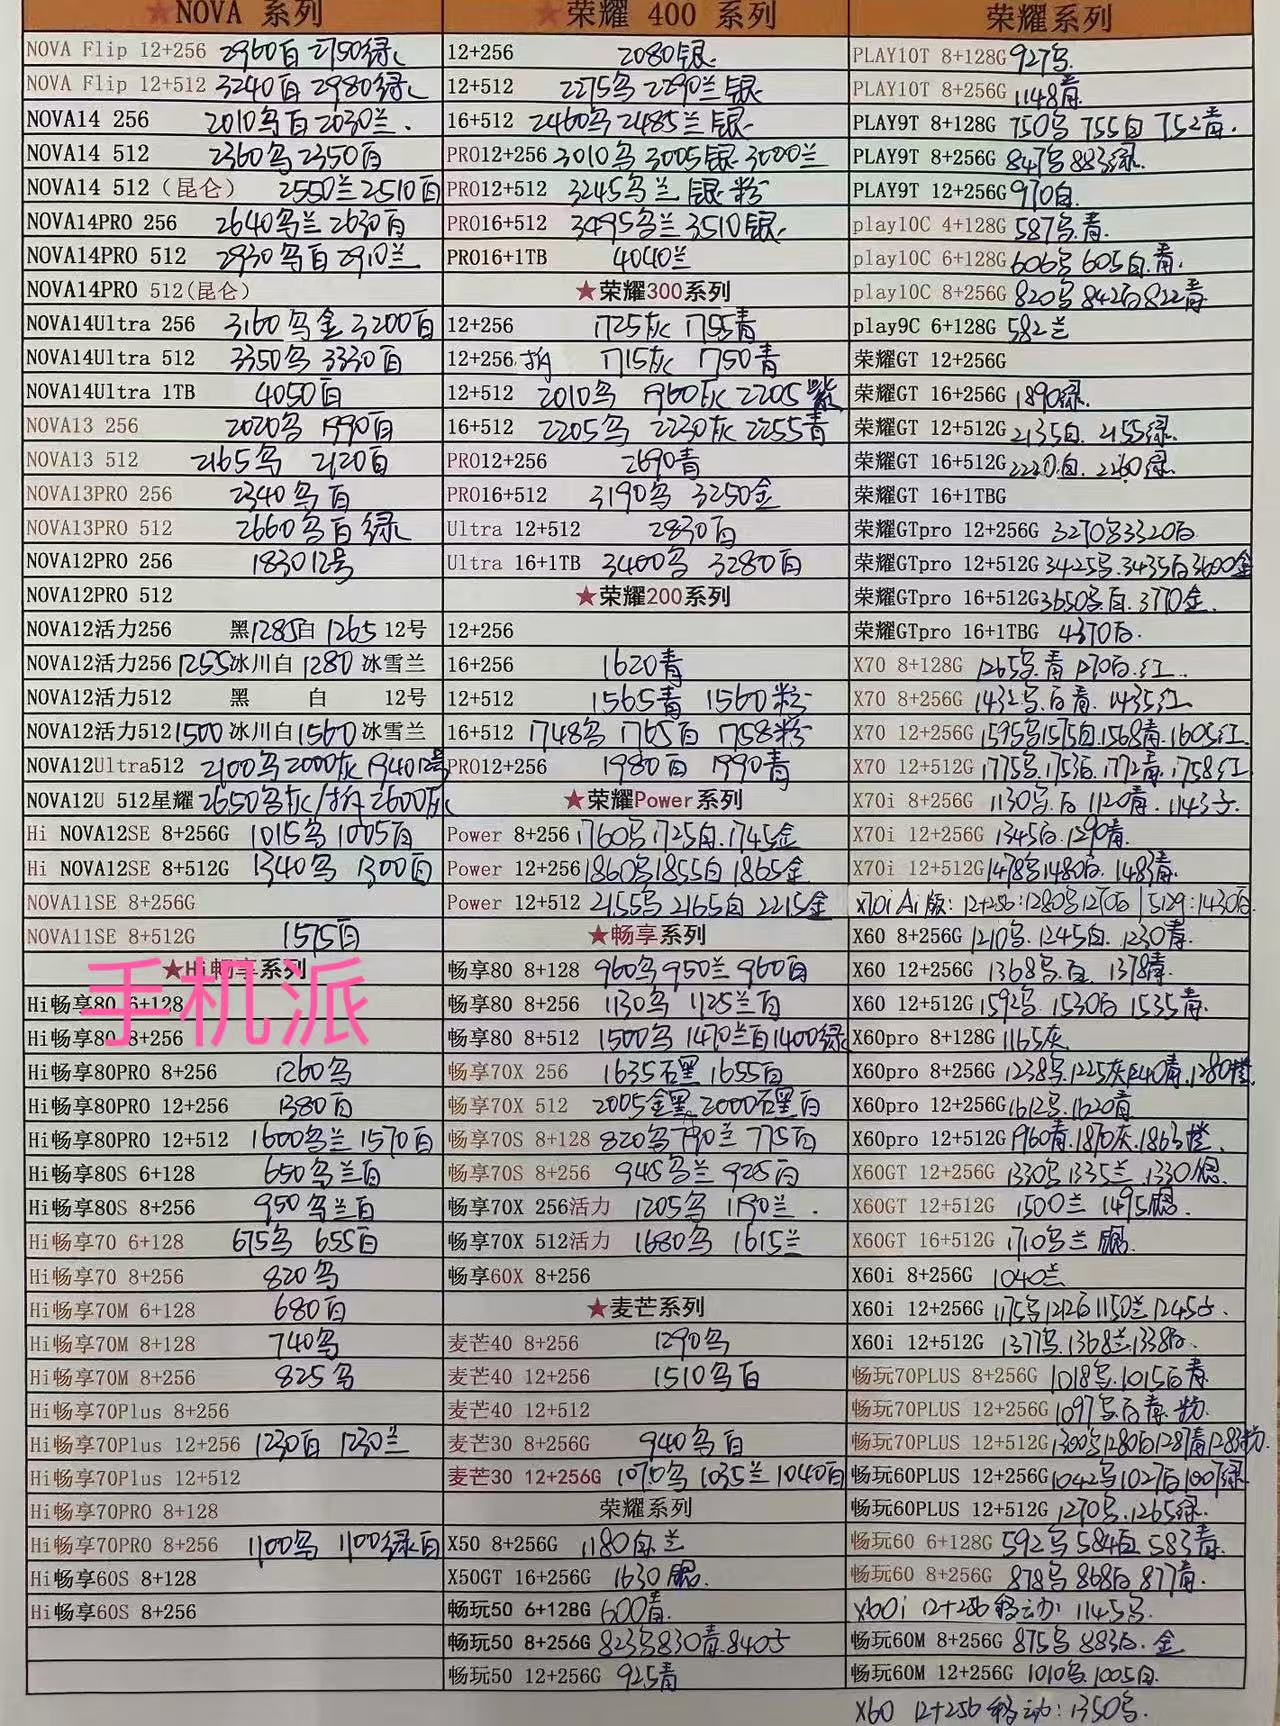 ★NOVA 系列
NOVA Flip 12+256 2960白 2750绿
NOVA Flip 12+512 3240白 2980绿
NOVA14 256 2010乌白 2030兰.
NOVA14 512 2360乌 2350白
NOVA14 512（昆仑） 2550兰 2510白
NOVA14PRO 256 2640乌兰 2630白
NOVA14PRO 512 2930乌白 2910兰
NOVA14PRO 512(昆仑)
NOVA14Ultra 256 3160乌金 3200白
NOVA14Ultra 512 3350乌 3330白
NOVA14Ultra 1TB 4050白
NOVA13 256 2020乌 1990白
NOVA13 512 2165乌 2120白
NOVA13PRO 256 2340乌白
NOVA13PRO 512 2660乌白绿
NOVA12PRO 256 1830 12号
NOVA12PRO 512
NOVA12活力256 黑1285白 1265 12号
NOVA12活力256 1255冰川白 1280 冰雪兰
NOVA12活力512 黑 白 12号
NOVA12活力512 1500 冰川白 1560 冰雪兰
NOVA12Ultra512 2100乌 2000灰 1940 12号
NOVA12U 512星耀 2650乌灰/拆 2600灰
Hi NOVA12SE 8+256G 1015乌 1005白
Hi NOVA12SE 8+512G 1340乌 1300白
NOVA11SE 8+256G
NOVA11SE 8+512G 1575白
★Hi畅享系列
手机派
Hi畅享80 6+128
Hi畅享80 8+256
Hi畅享80PRO 8+256 1260乌
Hi畅享80PRO 12+256 1380白
Hi畅享80PRO 12+512 1600乌兰 1570白
Hi畅享80S 6+128 650乌兰白
Hi畅享80S 8+256 950乌兰白
Hi畅享70 6+128 675乌 655白
Hi畅享70 8+256 820乌
Hi畅享70M 6+128 680白
Hi畅享70M 8+128 740乌
Hi畅享70M 8+256 825乌
Hi畅享70Plus 8+256
Hi畅享70Plus 12+256 1230白 1230兰
Hi畅享70Plus 12+512
Hi畅享70PRO 8+128
Hi畅享70PRO 8+256 1100乌 1100绿白
Hi畅享60S 8+128
Hi畅享60S 8+256
★荣耀 400 系列
12+256 2080银
12+512 2275乌 2290兰银
16+512 2460乌 2485兰银
PRO12+256 3010乌 3005银 3000兰
PRO12+512 3245乌兰 银 粉
PRO16+512 3495乌兰 3510银
PRO16+1TB 4040兰
★荣耀300系列
12+256 1725灰 1755青
12+256.拆 1715灰 1750青
12+512 2010乌 1960灰 2205紫
16+512 2205乌 2230灰 2255青
PRO12+256 2690青
PRO16+512 3190乌 3250金
Ultra 12+512 2830白
Ultra 16+1TB 3400乌 3280白
★荣耀200系列
12+256
16+256 1620青
12+512 1565青 1560粉
16+512 1748乌 1765白 1758粉
PRO12+256 1980白 1990青
★荣耀Power系列
Power 8+256 1760乌 1725白.1745金
Power 12+256 1860乌 1855白 1865金
Power 12+512 2155乌 2165白 2215金
★畅享系列
畅享80 8+128 960乌 950兰 960白
畅享80 8+256 1130乌 1125兰白
畅享80 8+512 1500乌 1470兰白 1400绿
畅享70X 256 1635石黑 1655白
畅享70X 512 2005金黑 2000石黑白
畅享70S 8+128 820乌 790兰 775白
畅享70S 8+256 945乌兰 925白
畅享70X 256活力 1205乌 1190兰.
畅享70X 512活力 1680乌 1615兰
畅享60X 8+256
★麦芒系列
麦芒40 8+256 1290乌
麦芒40 12+256 1510乌白
麦芒40 12+512
麦芒30 8+256G 940乌白
麦芒30 12+256G 1070乌 1035兰 1040白
荣耀系列
X50 8+256G 1180白.兰
X50GT 16+256G 1630银.
畅玩50 6+128G 600青.
畅玩50 8+256G 823乌 830青.840
畅玩50 12+256G 925青
荣耀系列
PLAY10T 8+128G 927乌.
PLAY10T 8+256G 1148青.
PLAY9T 8+128G 750乌 755白 752青.
PLAY9T 8+256G 847乌 883绿.
PLAY9T 12+256G 970白.
play10C 4+128G 587乌.青.
play10C 6+128G 606乌 605白.青.
play10C 8+256G 820乌 842白 822青
play9C 6+128G 582兰
荣耀GT 12+256G
荣耀GT 16+256G 1890绿.
荣耀GT 12+512G 2135白. 2155绿.
荣耀GT 16+512G 2220.白. 2260绿.
荣耀GT 16+1TBG
荣耀GTpro 12+256G 3270乌 3320白
荣耀GTpro 12+512G 3425乌.3435白 3600金
荣耀GTpro 16+512G 3650乌.白.3770金.
荣耀GTpro 16+1TBG 4370白.
X70 8+128G 1265乌.青 1270白.红.
X70 8+256G 1432乌.白青. 1435红
X70 12+256G 1595乌 1575白.1568青.1605红.
X70 12+512G 1775乌.1751白.1772青.1758红
X70i 8+256G 1130乌.白 1120青. 1143
X70i 12+256G 1345白.1290青.
X70i 12+512G 1478乌 1480白. 1483青.
X70i Ai版: 12+256:1280乌 1270白 | 512g:1430白.
X60 8+256G 1210乌. 1245白. 1230青.
X60 12+256G 1368乌.白. 1378青.
X60 12+512G 1592乌. 1530白 1535青.
X60pro 8+128G 1165灰
X60pro 8+256G 1238乌.1225灰 1240青.1280橙.
X60pro 12+256G 1612乌.1620青
X60pro 12+512G 1960青.1870灰.1863橙.
X60GT 12+256G 1330乌 1335兰 .1330银.
X60GT 12+512G 1500兰 1495银.
X60GT 16+512G 1710乌兰 银.
X60i 8+256G 1040兰
X60i 12+256G 1175乌 1212白 1150兰 1245
X60i 12+512G 1377乌.1368兰.1338白.
畅玩70PLUS 8+256G 1018乌.1015白青
畅玩70PLUS 12+256G 1097乌.白青.粉.
畅玩70PLUS 12+512G 1300乌 1280白 1287青 1283粉.
畅玩60PLUS 12+256G 1042乌 1027白 1007绿
畅玩60PLUS 12+512G 1270乌.1265绿.
畅玩60 6+128G 592乌 584白 583青.
畅玩60 8+256G 878乌 868白 877青.
X60i 12+256移动 1145乌.
畅玩60M 8+256G 875乌 883白.金
畅玩60M 12+256G 1010乌.1005白.
X60 12+256移动:1350乌.